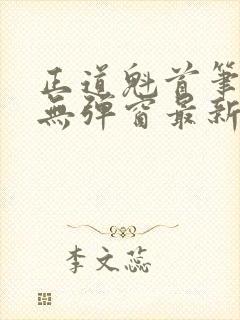 正道魁首筆
無彈窗最新
李文蕊